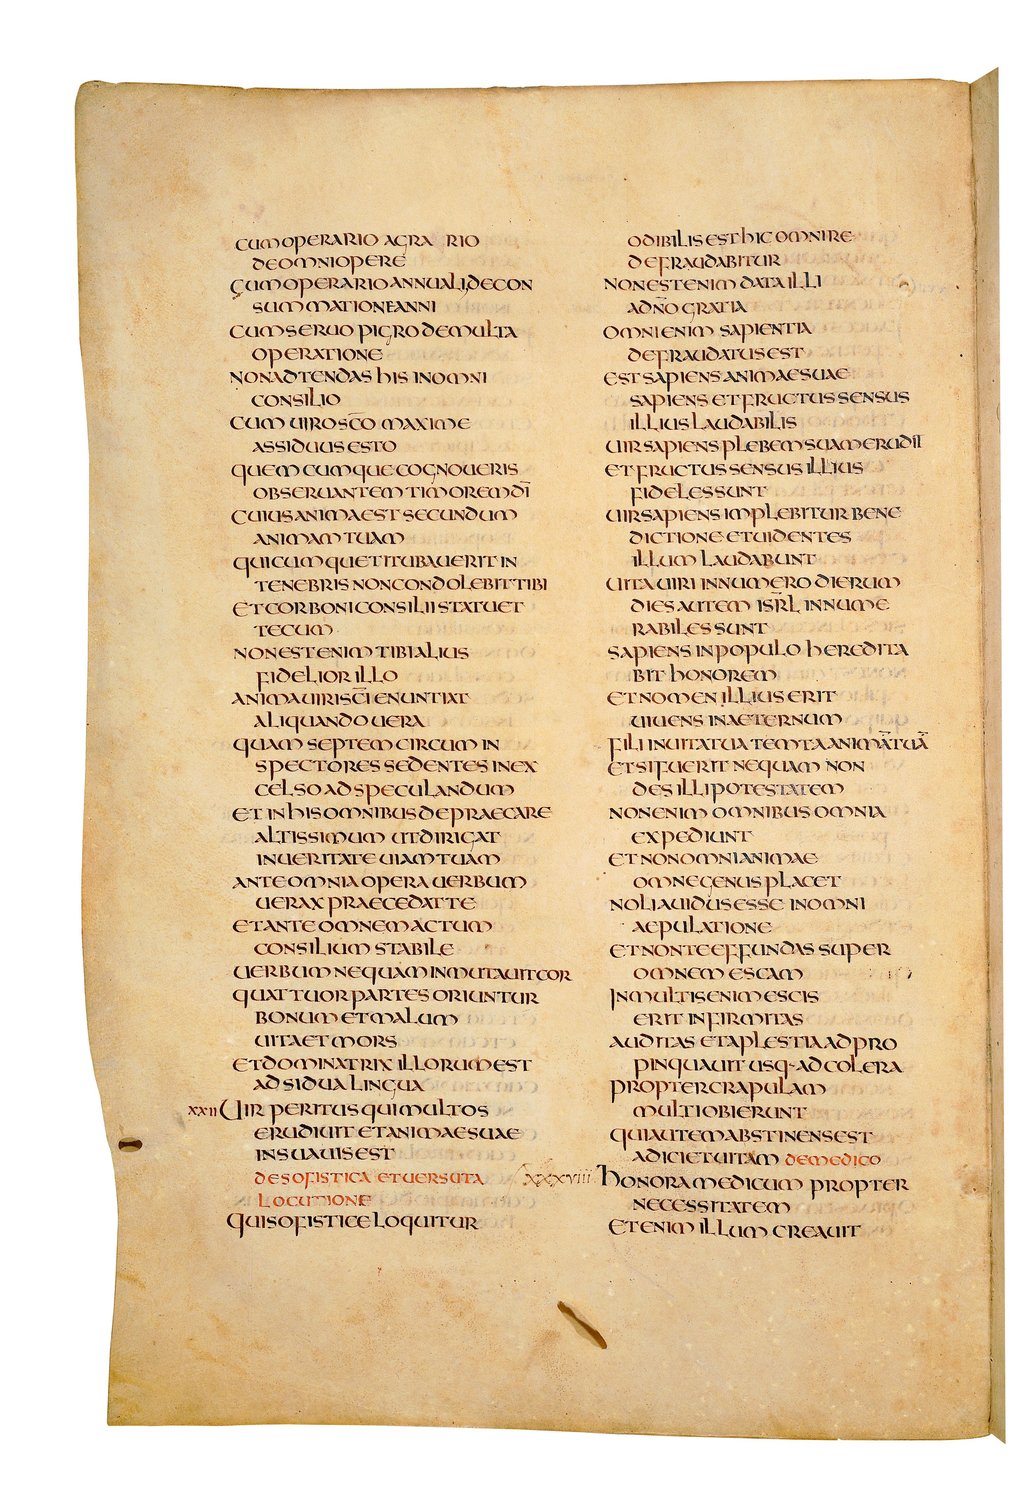 CUM OPERARIO AGRA RIO
DE OMNI OPERE
CUM OPERARIO ANNUALI DE CON
SUMMATIONE ANNI
CUM SERUO PIGRO DE MULTA
OPERATIONE
NON ADTENDAS HIS IN OMNI
CONSILIO
CUM UIRO SC̄O MAXIME
ASSIDUUS ESTO
QUEMCUMQUE COGNOUERIS
OBSERUANTEM TIMOREM DĪ
CUIUS ANIMA EST SECUNDUM
ANIMAM TUAM
QUICUMQUE TITUBAUERIT IN
TENEBRIS NON CONDOLEBIT TIBI
ET COR BONI CONSILII STATUET
TECUM
NON EST ENIM TIBI ALIUS
FIDELIOR ILLO
ANIMA UIRI SC̄I ENUNTIAT
ALIQUANDO UERA
QUAM SEPTEM CIRCUM IN
SPECTORES SEDENTES IN EX
CELSO AD SPECULANDUM
ET IN HIS OMNIBUS DEPRAECARE
ALTISSIMUM UT DIRIGAT
IN UERITATE UIAM TUAM
ANTE OMNIA OPERA UERBUM
UERAX PRAECEDAT TE
ET ANTE OMNEM ACTUM
CONSILIUM STABILE
UERBUM NEQUAM INMUTAUIT COR
QUATTUOR PARTES ORIUNTUR
BONUM ET MALUM
UITA ET MORS
ET DOMINATRIX ILLORUM EST
ADSIDUA LINGUA
XXII UIR PERITUS QUI MULTOS
ERUDIUIT ET ANIMAE SUAE
INSUAUIS EST
DE SOFISTICA ET UERSUTA
LOCUTIONE
QUI SOFISTICE LOQUITUR
ODIBILIS EST HIC OMNI RE
DEFRAUDABITUR
NON EST ENIM DATA ILLI
AD̄NO GRATIA
OMNI ENIM SAPIENTIA
DEFRAUDATUS EST
EST SAPIENS ANIMAE SUAE
SAPIENS ET FRUCTUS SENSUS
ILLIUS LAUDABILIS
UIR SAPIENS PLEBEM SUAM ERUDIT
ET FRUCTUS SENSUS ILLIUS
FIDELES SUNT
UIR SAPIENS IMPLEBITUR BENE
DICTIONE ET UIDENTES
ILLUM LAUDABUNT
UITA UIRI IN NUMERO DIERUM
DIES AUTEM ISR̄L INNUME
RABILES SUNT
SAPIENS IN POPULO HEREDITA
BIT HONOREM
ET NOMEN ILLIUS ERIT
UIUENS IN AETERNUM
FILI IN UITA TUA TEMTA ANIMĀ TUĀ
ET SI FUERIT NEQUAM NON
DES ILLI POTESTATEM
NON ENIM OMNIBUS OMNIA
EXPEDIUNT
ET NON OMNI ANIMAE
OMNE GENUS PLACET
NOLI AUIDUS ESSE IN OMNI
AEPULATIONE
ET NON TE EFFUNDAS SUPER
OMNEM ESCAM
IN MULTIS ENIM ESCIS
ERIT INFIRMITAS
AUDITAS ET APLESTIA ADPRO
PINQUAUIT USQ· AD COLERA
PROPTER CRAPULAM
MULTI OBIERUNT
QUI AUTEM ABSTINENS EST
ADICIET UITAM DE MEDICO
XXXVIII HONORA MEDICUM PROPTER
NECESSITATEM
ETENIM ILLUM CREAUIT